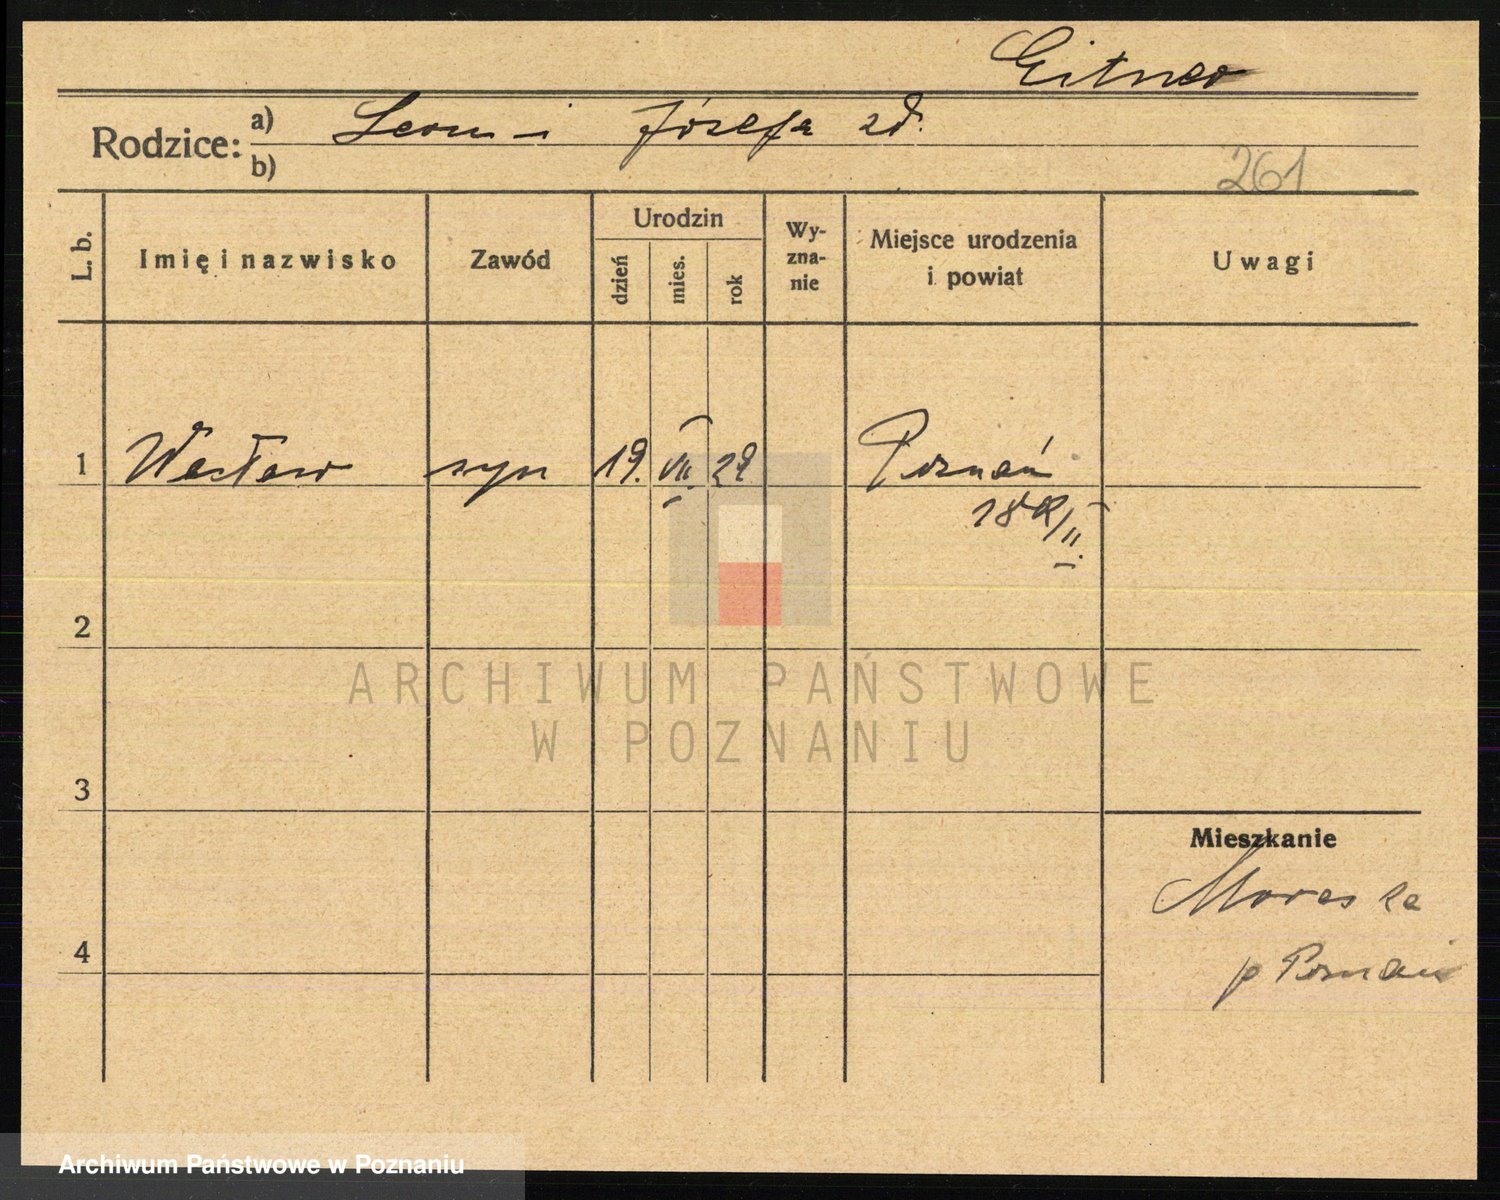 Gitner
Rodzice: a) Leon i Józefa zd.
b)
261
L. b.
Imię i nazwisko
Zawód
Urodzin
dzień
mies.
rok
Wy-
zna-
nie
Miejsce urodzenia
i powiat
Uwagi
1 Wacław syn 19. VII. 29 Poznań
2
3
4
Mieszkanie
Moraska
p Poznań
ARCHIWUM PAŃSTWOWE
W POZNANIU
Archiwum Państwowe w Poznaniu